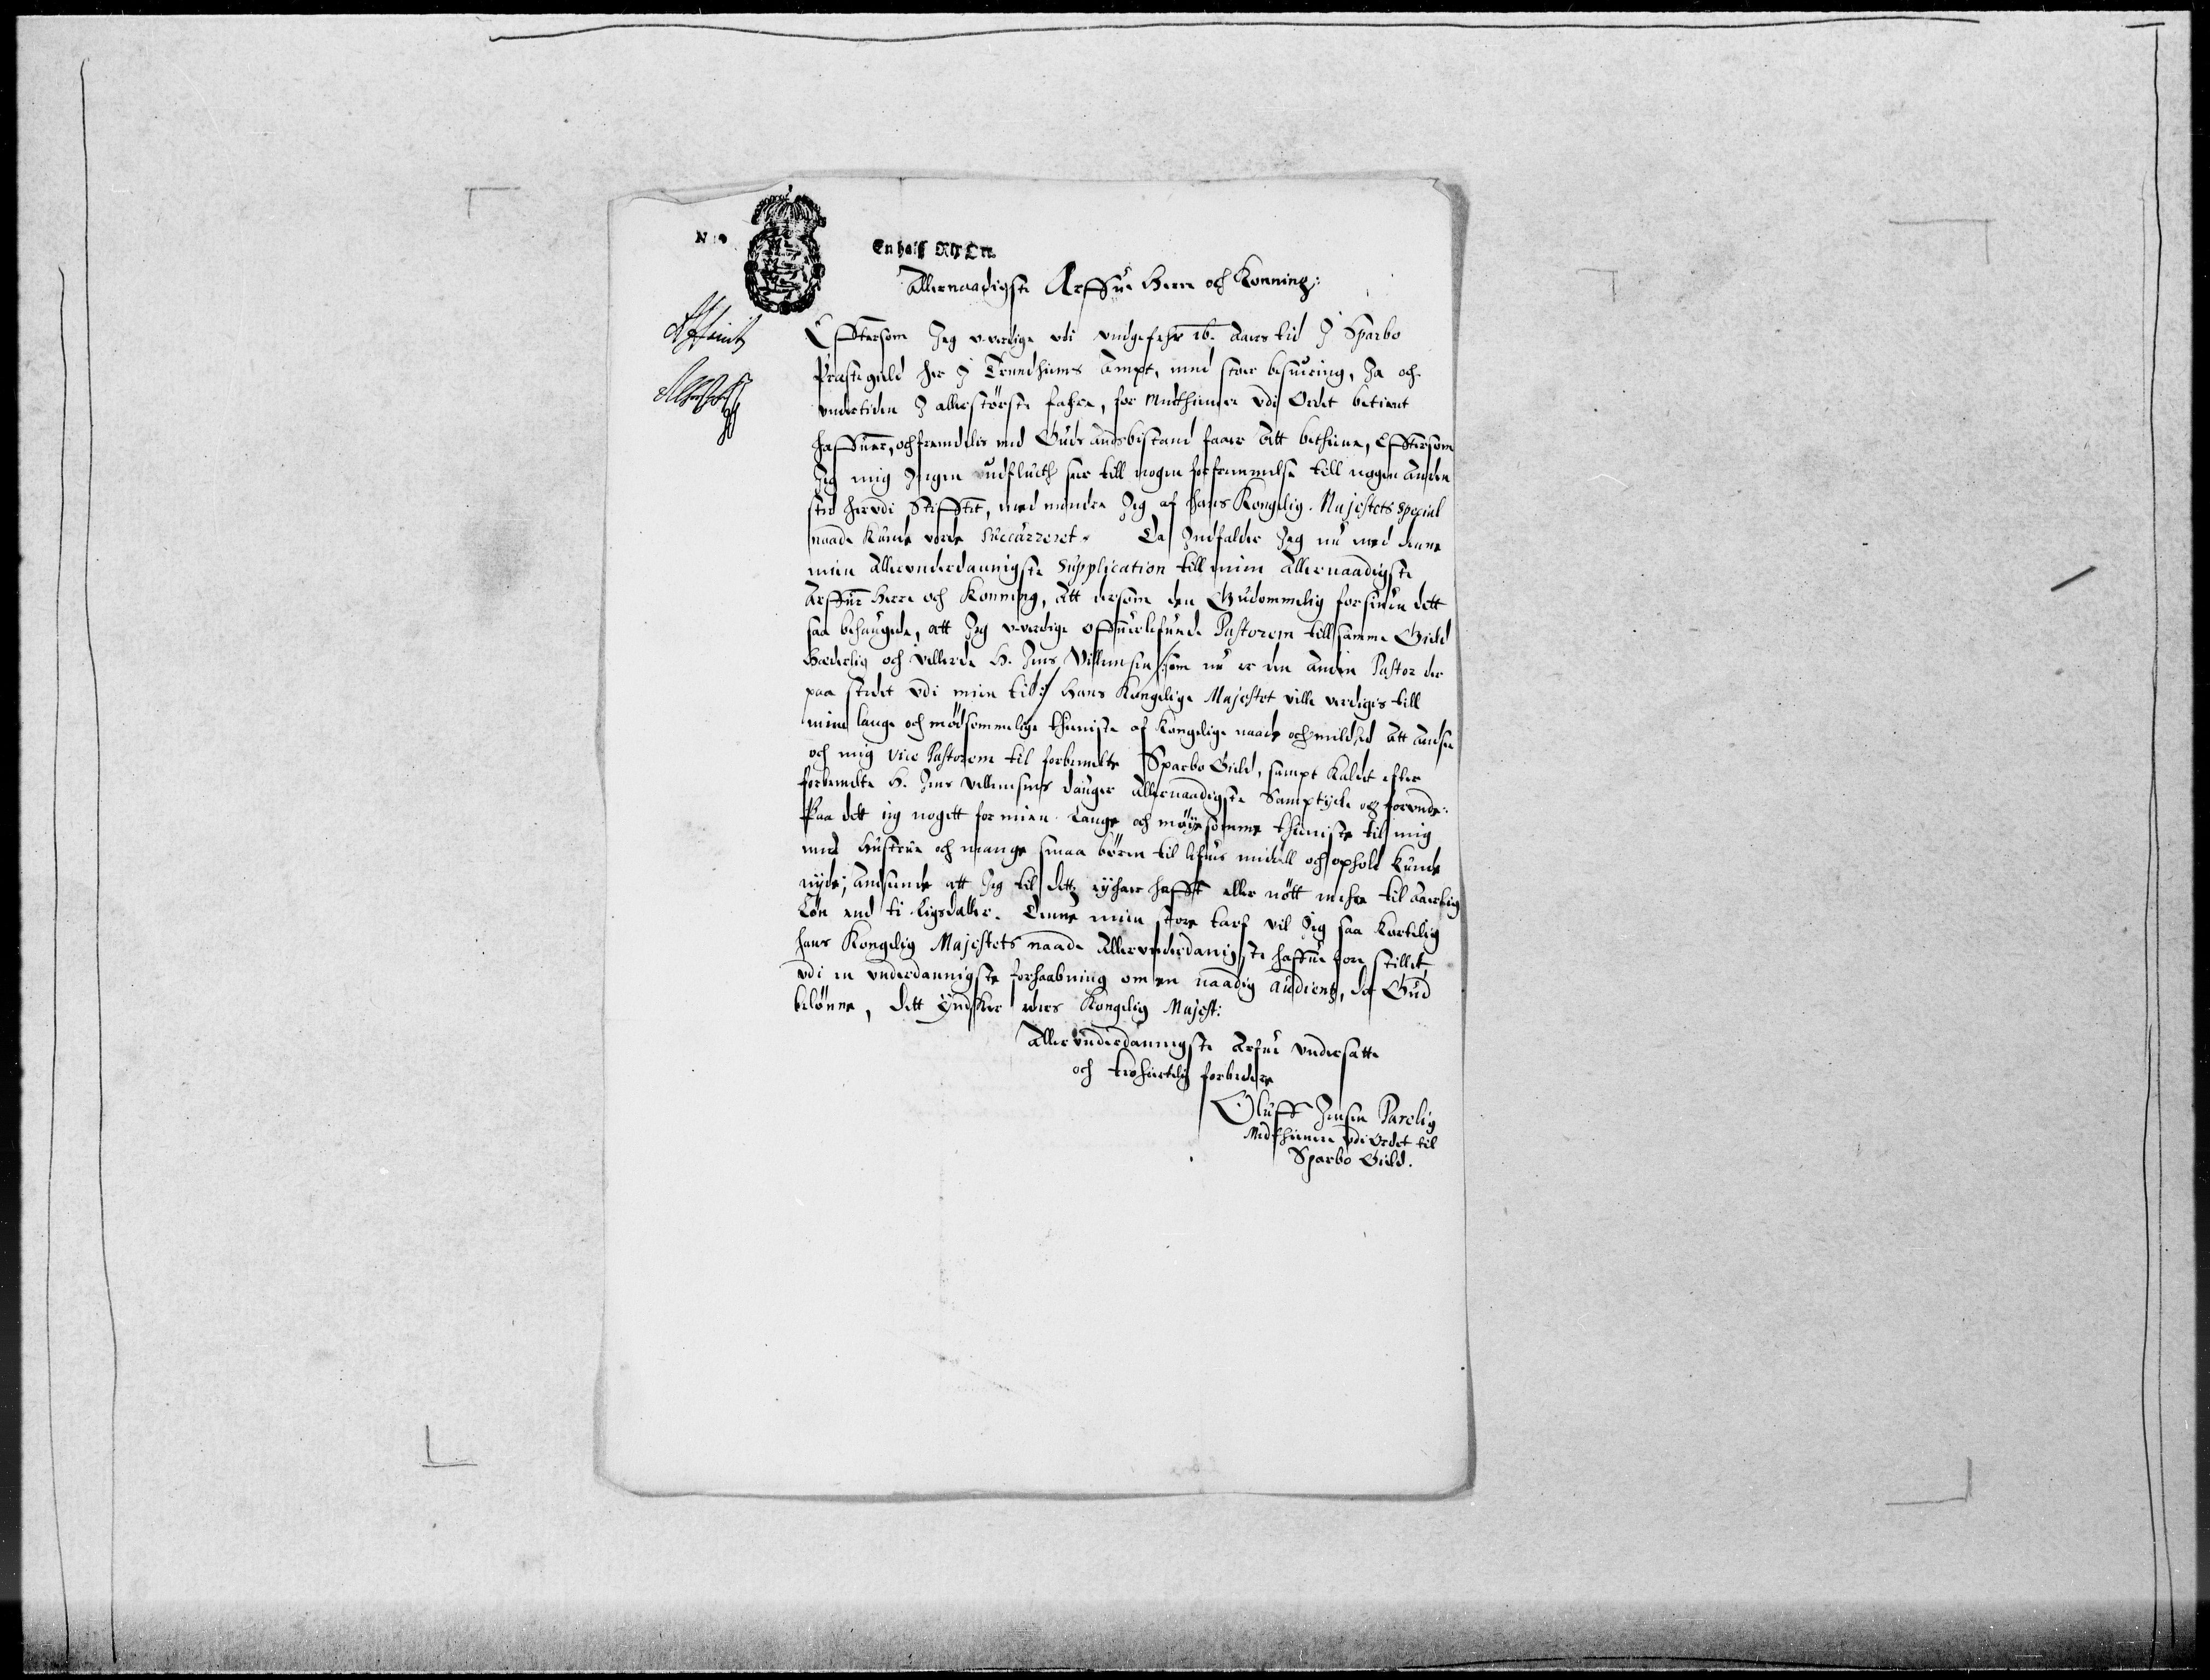 En half Rix Ort
Allernaadigste Arffue Herre och Konning:
Efftersom Jeg v-verdige vdi vndgefehr 16. aars tid J Sparbo
Præstegield her J Trundhiems Ampt, med stoer besuering, Ja och
vndertiden J allerstörste fahre, for Medthienere vdi Ordet betient
haffuer, och fremdelis med Guds aands bistand faaer att bethiene, Efftersom
Jeg mig Jngen udflucth seer till nogen forfremmelse till nogen anden
sted her vdi Stifftet, med mindre Jeg af hans Kongelig. Majestets special
naade kunde vorde succurreret. Da Jndfalder Jeg nu med denne
min Allervnderdannigste Supplication till min Allernaadigste
Arffue Herre och Konning, att dersom den Gudommelig forsiun dett
saa behaugede, att Jeg v-verdige offuerlefuede Pastorem till samme Gield
Hæderlig och Vellerde H. Jens Villumsen /: som nu er den anden Pastor der
paa stedet vdi min tid :/ Hans Kongelige Majestet ville verdiges till
min lange och mödsommelige thieniste af Kongelige naade och mildhed att andsee
och mig vice Pastorem til forbemelte Sparbo Gield, sampt kaldet efter
forbemelte H. Jens Villumsens dauger allernaadigste Samptycke og forvnde.
Paa dett jeg nogett for min lange och möyesomme thieniste til mig
med Hustrue och mange smaa börn til lifuens middell och ophold kunde
nyde; Andseende att Jeg til dette ey haer hafft eller nött mehre til aarlig
Lön end ti Rigsdaller. Denne min store tarf vil Jeg saa kortelig
hans Kongelig Majestets naade Allervnderdanigste haffue fore stillet,
vdi en vnderdannigste forhaabning om en naadig audientz, det Gud
belönne, dett Ynsker eders Kongelig Majest:
Aller vnderdannigste Arfue vndersatte
och trohiertelig forbedere
Oluff Jensen Parelig
Medthienere vdi Ordet til
Sparbo Gield.